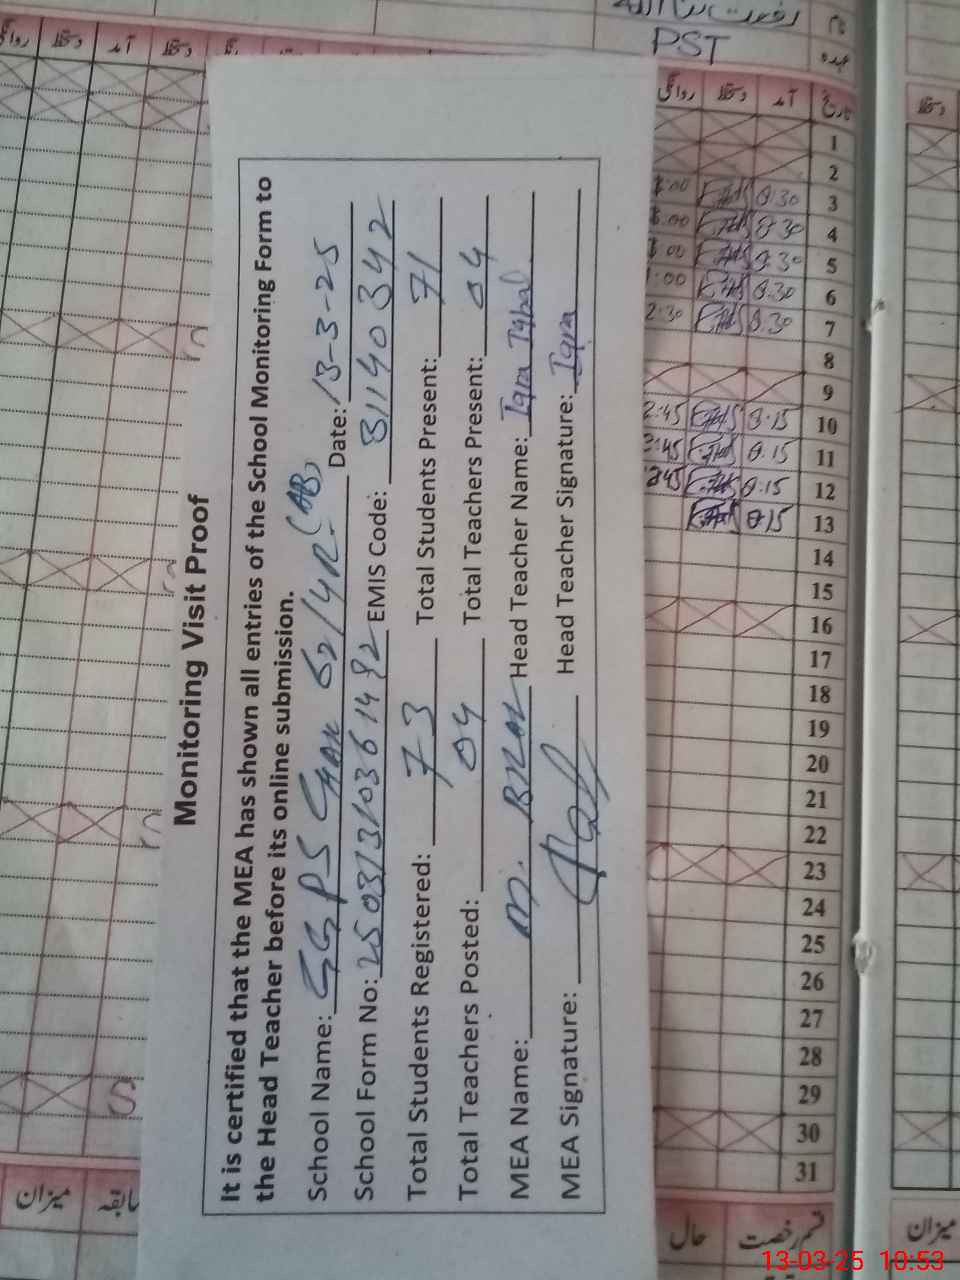 Monitoring Visit Proof
It is certified that the MEA has shown all entries of the School Monitoring Form to
the Head Teacher before its online submission.
School Name: GGPS Chak 52/4R (AB) Date: 13-3-25
School Form No: EMIS Code: 31140342
Total Students Registered: 73 Total Students Present: 71
Total Teachers Posted: 04 Total Teachers Present: 04
MEA Name: M. Head Teacher Name: Iqra Iqbal
MEA Signature: Head Teacher Signature: Iqra
PST
روانگی دستخط آمد تاریخ
1
2
3 8:30
4 8:30
5 8:30
6 8:30
7 8:30
8
9
10 8:15 2:45
11 8:15 2:45
12 8:15 2:45
13 8:15
14
15
16
17
18
19
20
21
22
23
24
25
26
27
28
29
30
31
میزان سابقہ حال قسم رخصت میزان
13-03-25 10:53